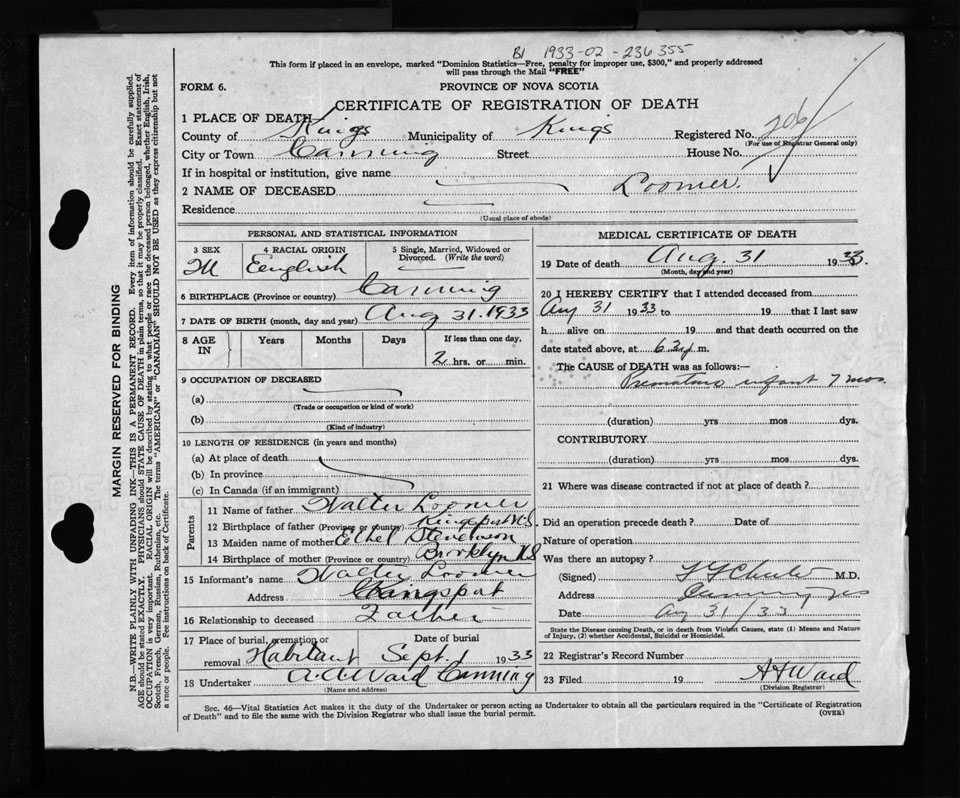 B1 1933-02-236355
This form if placed in an envelope, marked "Dominion Statistics—Free, penalty for improper use, $300," and properly addressed
will pass through the Mail "FREE"
FORM 6.
PROVINCE OF NOVA SCOTIA
CERTIFICATE OF REGISTRATION OF DEATH
1 PLACE OF DEATH
County of Kings Municipality of Kings Registered No. 206
(For use of Registrar General only)
City or Town Canning Street House No.
If in hospital or institution, give name
2 NAME OF DECEASED Loomer.
Residence
(Usual place of abode)
PERSONAL AND STATISTICAL INFORMATION
3 SEX 4 RACIAL ORIGIN 5 Single, Married, Widowed or
Divorced. (Write the word)
M English
6 BIRTHPLACE (Province or country) Canning
7 DATE OF BIRTH (month, day and year) Aug 31. 1933
8 AGE IN Years Months Days If less than one day,
2 hrs. or min.
9 OCCUPATION OF DECEASED
(a)
(Trade or occupation or kind of work)
(b)
(Kind of industry)
10 LENGTH OF RESIDENCE (in years and months)
(a) At place of death
(b) In province
(c) In Canada (if an immigrant)
Parents
11 Name of father Walter Loomer
12 Birthplace of father (Province or country) Kingsport N.S.
13 Maiden name of mother Ethel Stevenson
14 Birthplace of mother (Province or country) Brooklyn N S
15 Informant's name Walter Loomer
Address Kingsport
16 Relationship to deceased Father
17 Place of burial, cremation or removal Habitant Date of burial Sept. 1 1933
18 Undertaker A.A. Ward Canning
(Name and address)
MEDICAL CERTIFICATE OF DEATH
19 Date of death Aug. 31 1933.
(Month, day and year)
20 I HEREBY CERTIFY that I attended deceased from
Aug 31 1933 to 19 that I last saw
h alive on 19 and that death occurred on the
date stated above, at m.
The CAUSE of DEATH was as follows:—
Premature infant 7 mos.
(duration) yrs mos dys.
CONTRIBUTORY
(duration) yrs mos dys.
21 Where was disease contracted if not at place of death?
Did an operation precede death? Date of
Nature of operation
Was there an autopsy?
(Signed) M.D.
Address Canning NS
Date Aug 31/33
State the Disease causing Death, or in death from Violent Causes, state (1) Means and Nature
of Injury, (2) whether Accidental, Suicidal or Homicidal.
22 Registrar's Record Number
23 Filed 19 Ward
(Division Registrar)
Sec. 46—Vital Statistics Act makes it the duty of the Undertaker or person acting as Undertaker to obtain all the particulars required in the "Certificate of Registration
of Death" and to file the same with the Division Registrar who shall issue the burial permit.
(OVER)
MARGIN RESERVED FOR BINDING
N.B.—WRITE PLAINLY WITH UNFADING INK—THIS IS A PERMANENT RECORD. Every item of information should be carefully supplied.
AGE should be stated EXACTLY. PHYSICIANS should STATE CAUSE OF DEATH in plain terms, so that it may be properly classified. Exact statement of
OCCUPATION is very important. RACIAL ORIGIN will be described by stating to what people or race the deceased person belonged, whether English, Irish,
Scotch, French, German, Russian, Ruthenian, etc. The terms "AMERICAN" or "CANADIAN" SHOULD NOT BE USED as they express citizenship but not
a race or people. See instructions on back of Certificate.